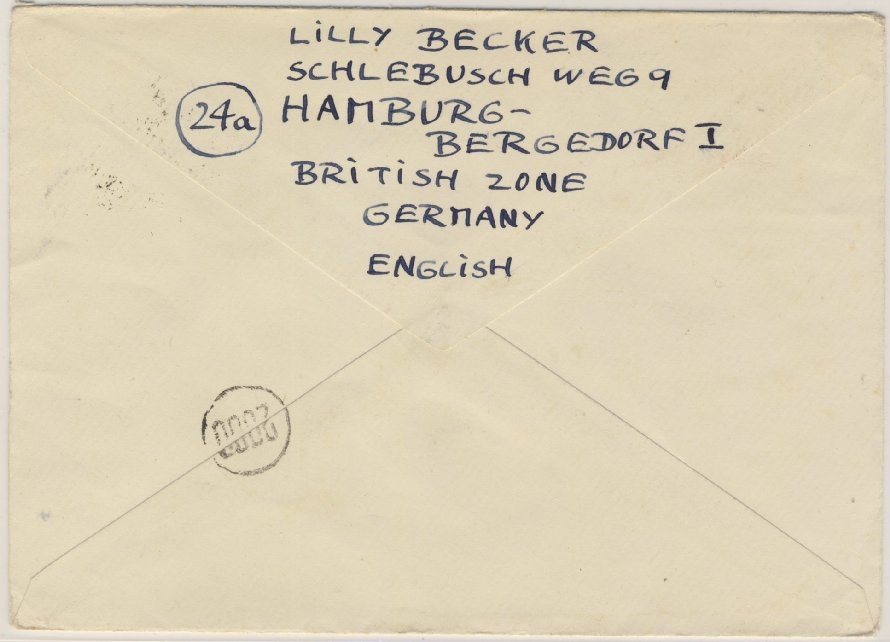 LiLLY BECKER
SCHLEBUSCH WEG 9
24a HAMBURG-
BERGEDORF I
BRiTiSH ZONE
GERMANY
ENGLiSH